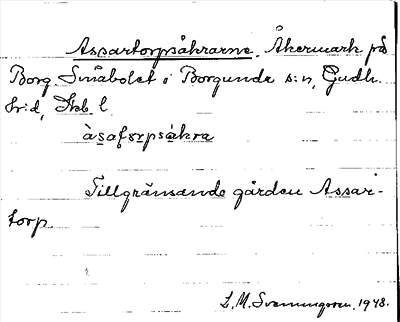 Assartorpsåkrarne. Åkermark på
Borg. Småbolet i Borgunda s:n, Gudh.
hr:d, Skb. l.
àsaforpsàkra
Tillgränsande gården Assar-
torp.
L. M. Svenungsson. 1948.